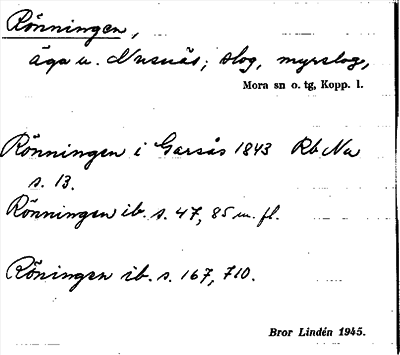 Rönningen,
äga u. Nusnäs; slog, myrslog,
Mora sn o. tg, Kopp. l.
Rönningen i Garsås 1843 Rb Na
s. 13.
Rönningen ib. s. 47, 85 m. fl.
Röningen ib. s. 167, 710.
Bror Lindén 1945.